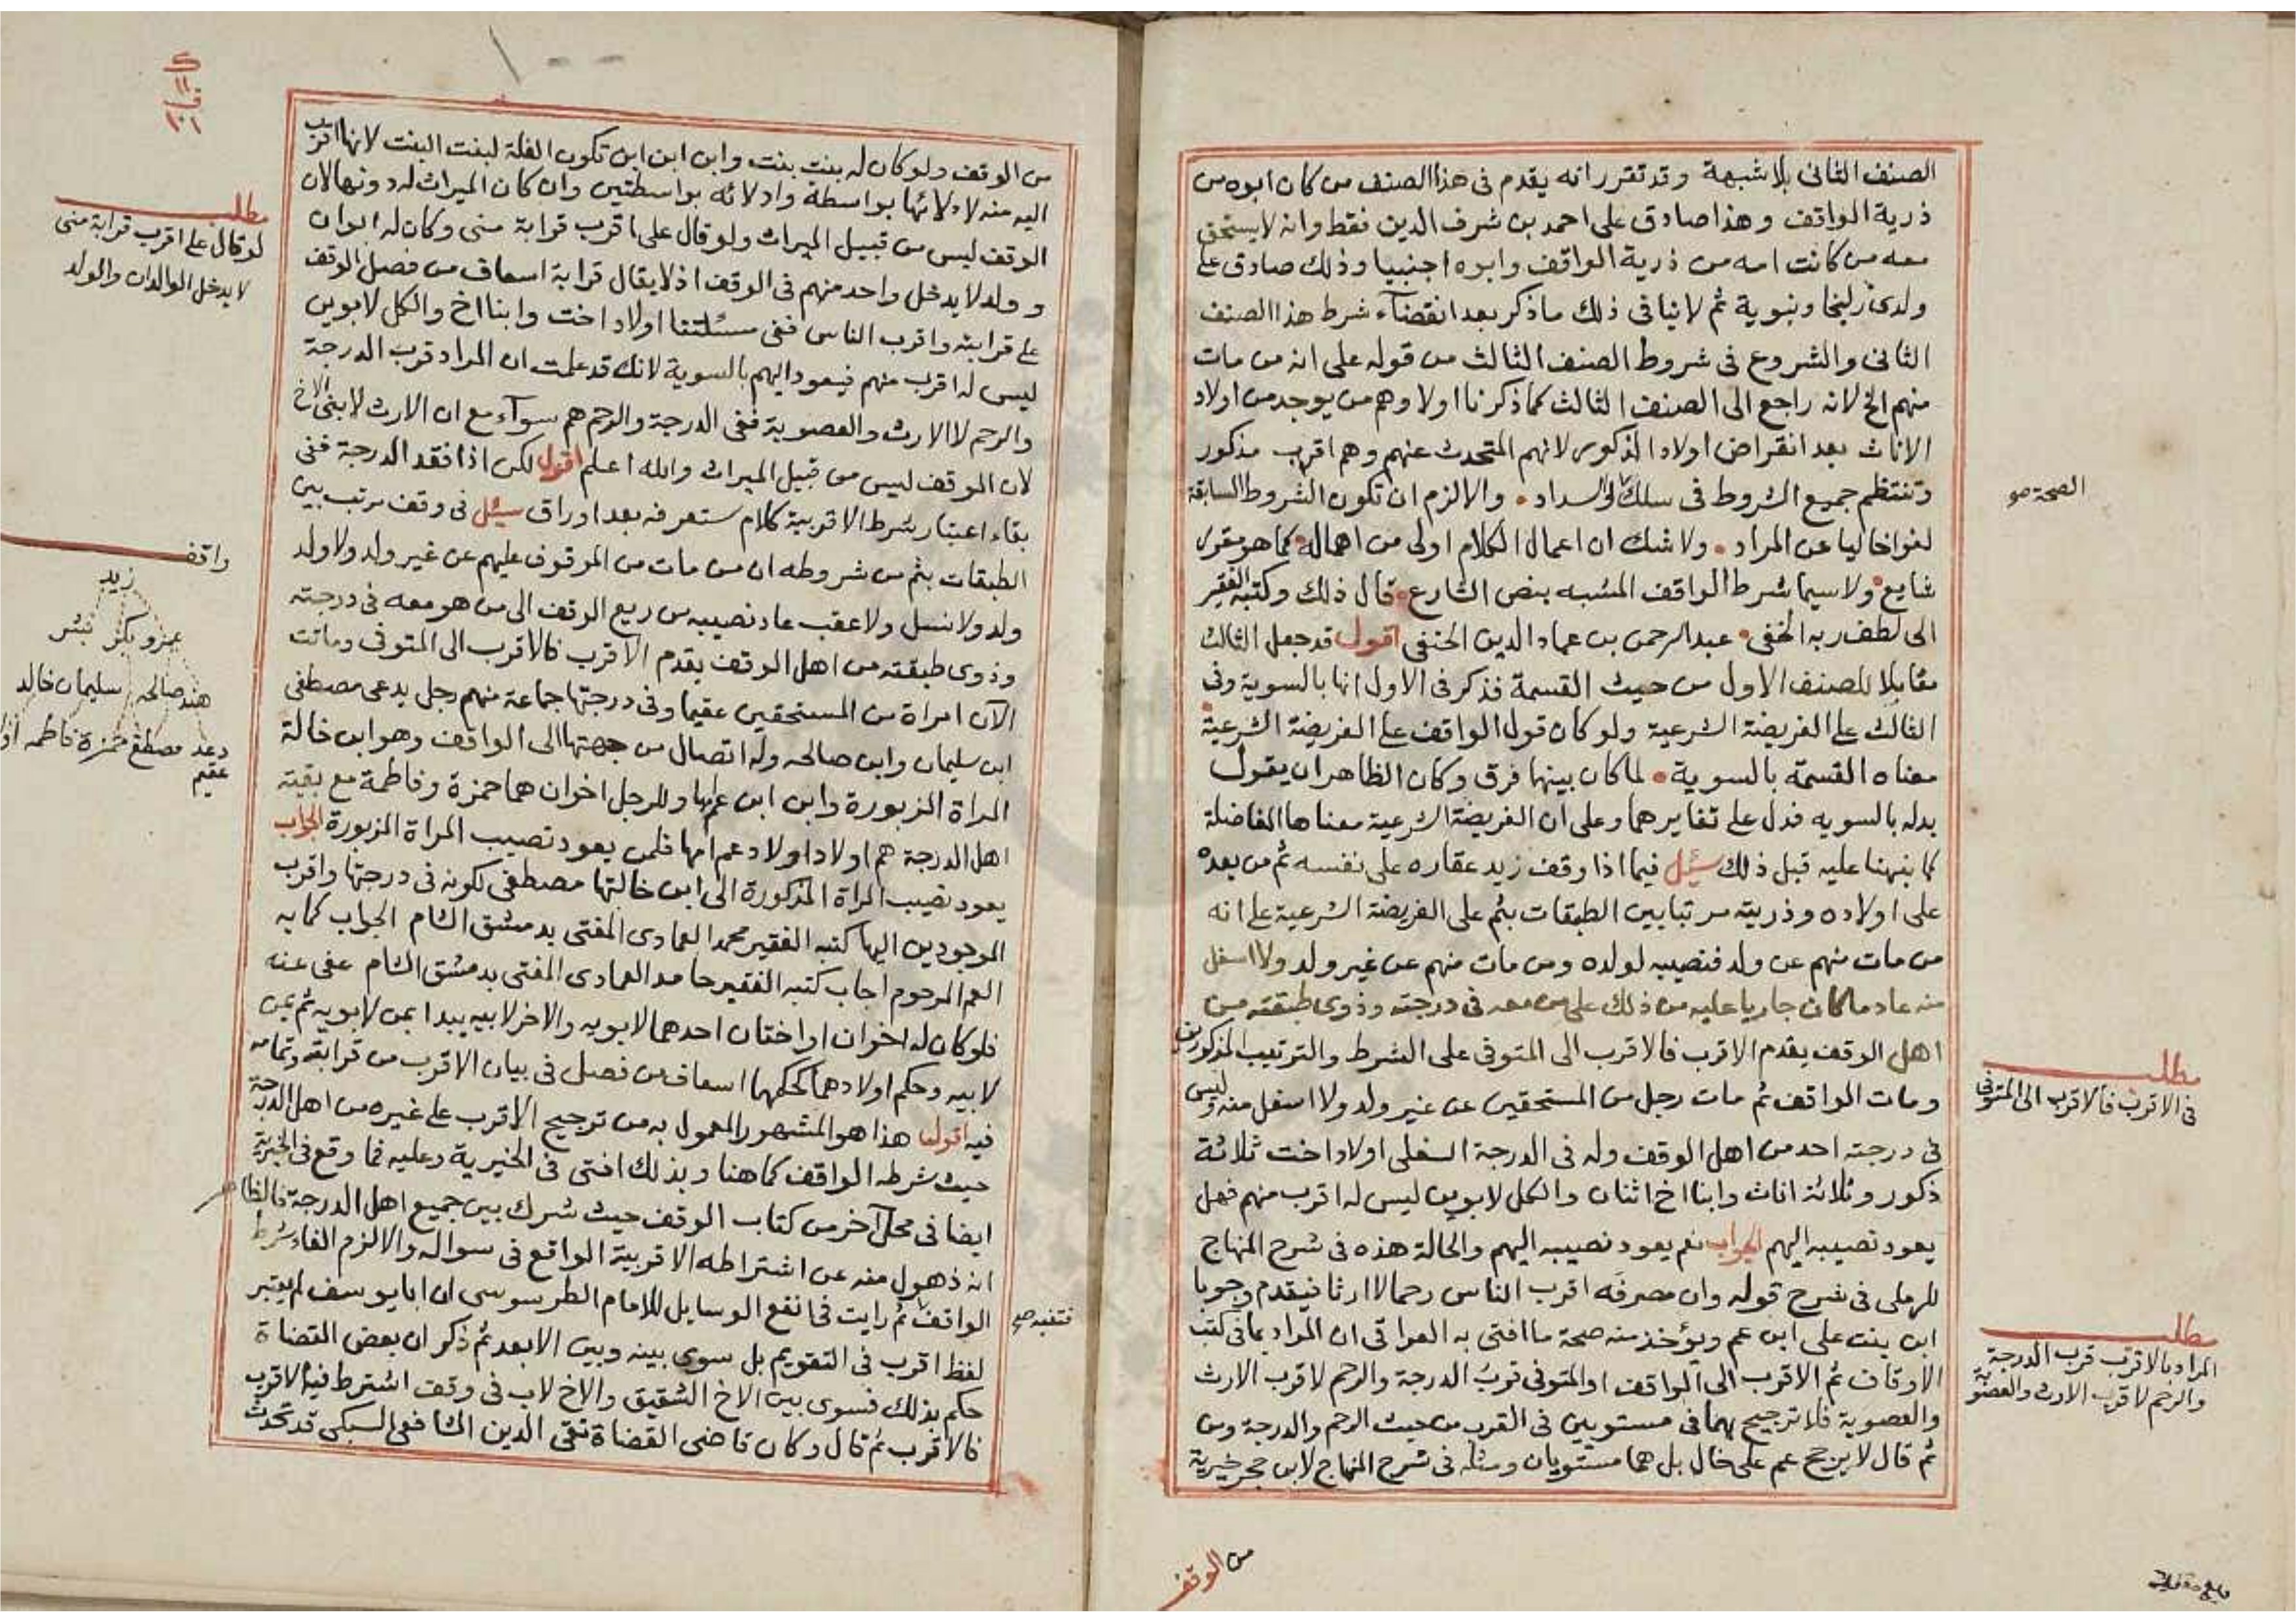 الصنف الثانى بلا شبهة وقد تقرر انه يقدم فى هذا الصنف من كان ابوه من
ذرية الواقف وهذا صادق على احمد بن شرف الدين فقط وانه لا يستحق
معه من كانت امه من ذرية الواقف وابوه اجنبيا وذلك صادق على
ولدى زليخا ونبوية ثم لا ينافى ذلك ما ذكر بعد انقضآء شرط هذا الصنف
الثانى والشروع فى شروط الصنف الثالث من قوله على انه من مات
منهم الخ لانه راجع الى الصنف الثالث كما ذكرنا اولا وهم من يوجد من اولاد
الاناث بعد انقراض اولاد الذكور لانهم المتحدث عنهم وهم اقرب مذكور
وتنتظم جميع الشروط فى سلك السداد والا لزم ان تكون الشروط السابقة
لغوا خاليا عن المراد ولا شك ان اعمال الكلام اولى من اهماله كما هو مقرر
شايع ولا سيما شرط الواقف المشبه بنص الشارع قال ذلك وكتبه الفقير
الى لطف ربه الخفى عبد الرحمن بن عماد الدين الحنفى اقول قد جعل الثالث
مقابلا للصنف الاول من حيث القسمة فذكر فى الاول انها بالسوية وفى
الثالث على الفريضة الشرعية ولو كان قول الواقف على الفريضة الشرعية
معناه القسمة بالسوية لما كان بينها فرق وكان الظاهر ان يقول
بدله بالسويه فدل على تغايرهما وعلى ان الفريضة الشرعية معناها المفاضلة
كما بنهنا عليه قبل ذلك سئيل فيما اذا وقف زيد عقاره على نفسه ثم من بعده
على اولاده وذريته مرتبا بين الطبقات بثم على الفريضة الشرعية على انه
من مات منهم عن ولد فنصيبه لولده ومن مات منهم عن غير ولد ولا اسفل
منه عاد ما كان جاريا عليه من ذلك على من معه فى درجته وذوى طبقته من
اهل الوقف يقدم الاقرب فالاقرب الى المتوفى على الشرط والترتيب المذكورين
ومات الواقف ثم مات رجل من المستحقين عن غير ولد ولا اسفل منه وليس
فى درجته احد من اهل الوقف وله فى الدرجة السفلى اولاد اخت ثلاثة
ذكور وثلاثة اناث وابنا اخ اثنان والكل لابوين ليس له اقرب منهم فهل
يعود نصيبه اليهم الجواب نعم يعود نصيبه اليهم والحالة هذه فى شرح المنهاج
للرملى فى شرح قوله وان مصرفه اقرب الناس رحما لا ارثا فيقدم وجوبا
ابن بنت على ابن عم ويؤخذ منه صحة ما افتى به العراقى ان المراد بما فى كتب
الاوقاف ثم الاقرب الى الواقف او المتوفى قرب الدرجة والرحم لا قرب الارث
والعصوبة فلا ترجيح بهما فى مستويين فى القرب من حيث الرحم والدرجة ومن
ثم قال لا يرجح عم على خال بل هما مستويان ومثله فى شرح المنهاج لابن حجر خيرية
من الوقف
الصحة صو
مطلب
فى الاقرب فالاقرب الى المتوفى
مطلب
المراد بالاقرب قرب الدرجة
والرحم لا قرب الارث والعصوبة
من الوقف ولو كان له بنت بنت وابن ابن ابن تكون الغلة لبنت البنت لانها اقرب
اليه منه لادلائها بواسطة وادلائه بواسطتين وان كان الميراث له دونها لان
الوقف ليس من قبيل الميراث ولو قال على اقرب قرابة منى وكان له ابوان
وولد لا يدخل واحد منهم فى الوقف اذ لا يقال قرابة اسعاف من فصل الوقف
على قرابته واقرب الناس ففى مسئلتنا اولاد اخت وابنا اخ والكل لابوين
ليس له اقرب منهم فيعود اليهم بالسوية لانك قد علمت ان المراد قرب الدرجة
والرحم لا الارث والعصوبة ففى الدرجة والرحم هم سوآء مع ان الارث لابنى الاخ
لان الوقف ليس من قبيل الميراث والله اعلم اقول لكن اذا فقد الدرجة ففى
بقاء اعتبار شرط الاقربية كلام ستعرفه بعد اوراق سئيل فى وقف مرتب بين
الطبقات بثم من شروطه ان من مات من الموقوف عليهم عن غير ولد ولا ولد
ولد ولا نسل ولا عقب عاد نصيبه من ريع الوقف الى من هو معه فى درجته
وذوى طبقته من اهل الوقف يقدم الاقرب فالاقرب الى المتوفى وماتت
الآن امراة من المستحقين عقيما وفى درجتها جماعة منهم رجل يدعى مصطفى
ابن سليمان وابن صالحه وله اتصال من جهتها الى الواقف وهو ابن خالة
المراة المزبورة وابن ابن عمها وللرجل اخوان هما حمزة وفاطمة مع بقية
اهل الدرجة هم اولاد اولاد عم امها فلمن يعود نصيب المراة المزبورة الجواب
يعود نصيب المراة المذكورة الى ابن خالتها مصطفى لكونه فى درجتها واقرب
الموجودين اليها كتبه الفقير محمد العمادى المفتى بدمشق الشام الجواب كما به
العم المرحوم اجاب كتبه الفقير حامد العمادى المفتى بدمشق الشام عفى عنه
فلو كان له اخوان او اختان احدهما لابويه والاخر لابيه يبدا بمن لابويه ثم بمن
لابيه وحكم اولادهما كحكمهما اسعاف من فصل فى بيان الاقرب من قرابته وتمامه
فيه اقول هذا هو المشهور المعمول به من ترجيح الاقرب على غيره من اهل الدرجة
حيث شرطه الواقف كما هنا وبذلك افتى فى الخيرية وعليه فما وقع فى الخيرية
ايضا فى محل آخر من كتاب الوقف حيث شرك بين جميع اهل الدرجة فالظاهر
انه ذهول منه عن اشتراطه الاقربية الواقع فى سواله والا لزم الغاء شرط
الواقف ثم رايت فى انفع الوسايل للامام الطرسوسى ان ابا يوسف لم يعتبر
لفظ اقرب فى التقويم بل سوى بينه وبين الابعد ثم ذكر ان بعض القضاة
حكم بذلك فسوى بين الاخ الشقيق والاخ لاب فى وقف اشترط فيه الاقرب
فالاقرب ثم قال وكان قاضى القضاة تقى الدين الشافعى السبكى قد تحدث
فتنبه صح
مطلب
لو قال على اقرب قرابة منى
لا يدخل الوالدان والولد
واقف
زيد
عمرو بكر بشر
هند صالحه سليمان خالد
دعد مصطفى حمزة فاطمه
عقيم